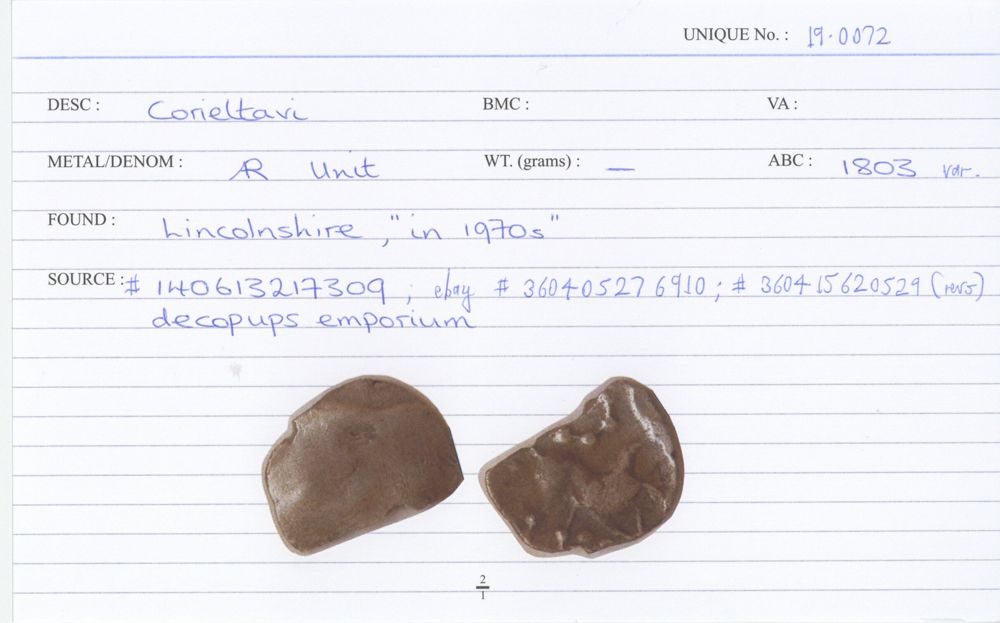 UNIQUE No. : 19.0072
DESC : Corieltavi BMC : VA :
METAL/DENOM : AR Unit WT. (grams) : — ABC : 1803 var.
FOUND : Lincolnshire, "in 1970s"
SOURCE : # 140613217309 ; ebay # 360405276910 ; # 360415620529 (revs)
decopups emporium
2
1